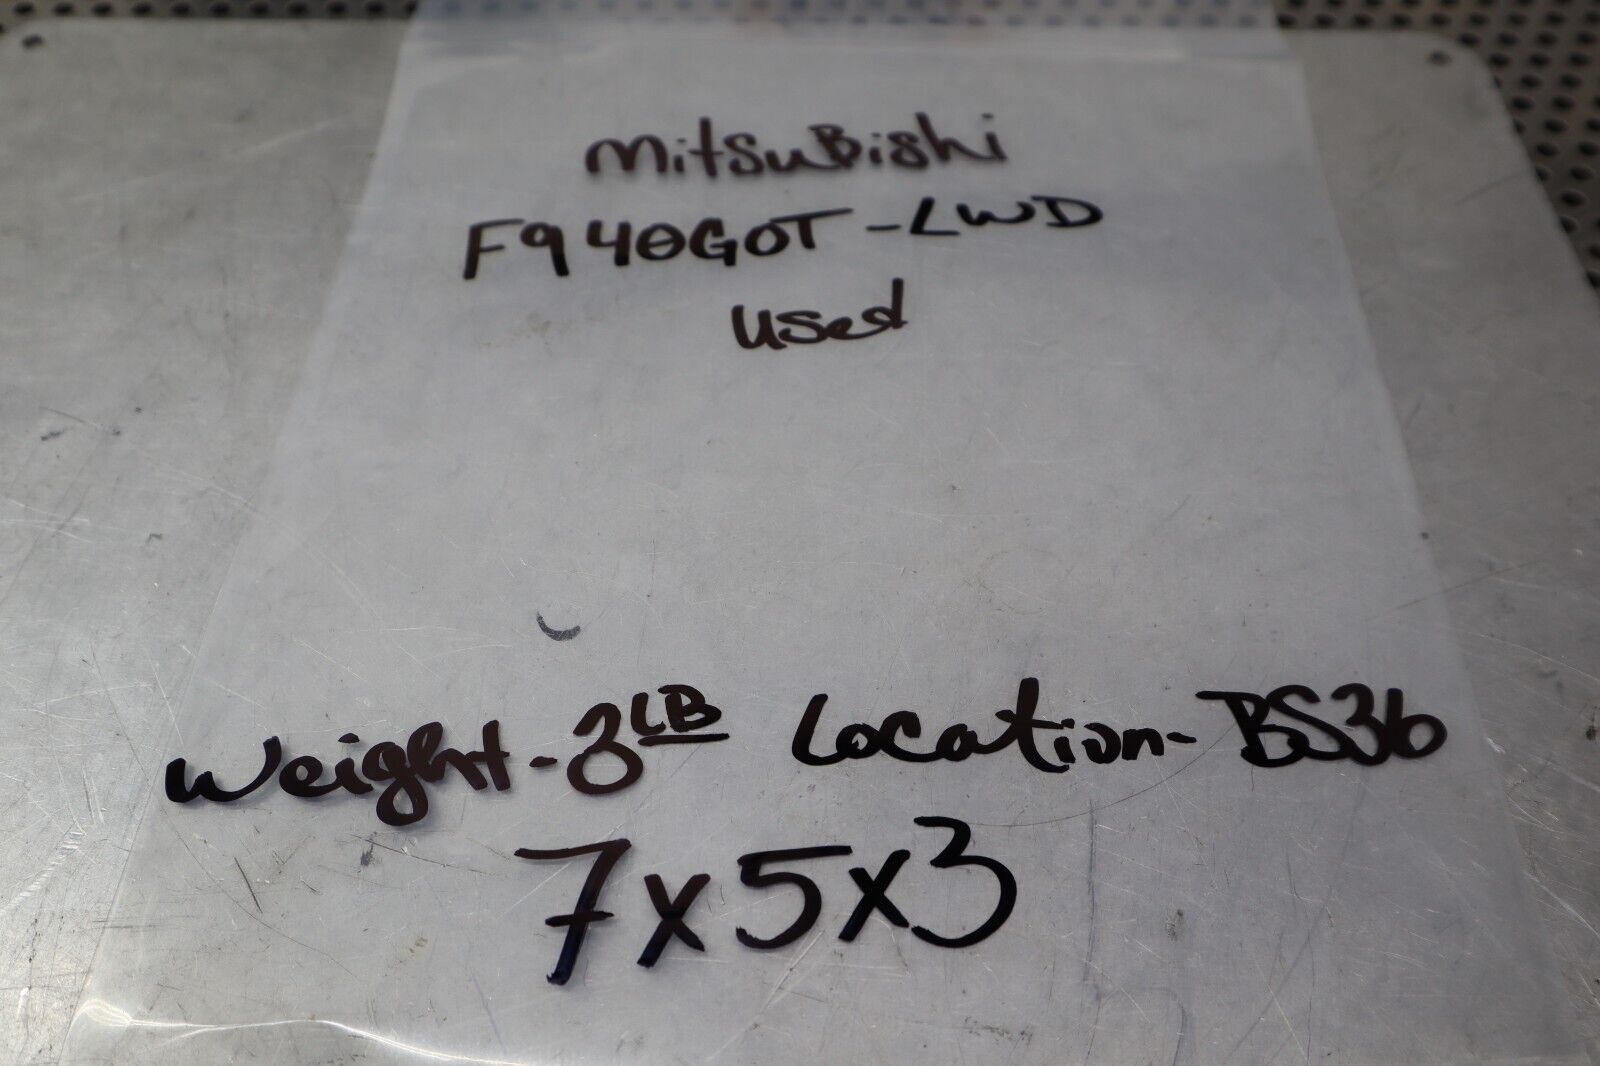 MitsuBishi
F940GOT-LWD
Used
Weight-3LB Location-BS36
7x5x3